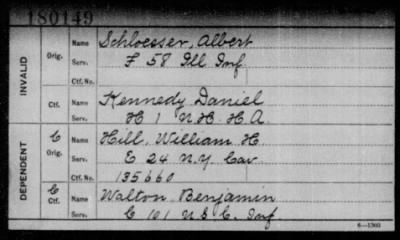 180149
INVALID
Orig.
Name Schloesser, Albert
Serv. F 58 Ill Inf.
Ctf. No.
Ctf.
Name Kennedy Daniel
Serv. H 1 N.H. H.A.
DEPENDENT
C
Orig.
Name Hill, William H.
Serv. E 24 N.Y. Cav
Ctf. No. 135660
C
Ctf.
Name Walton Benjamin
Serv. C 101 U.S.C. Inf.
6—1360